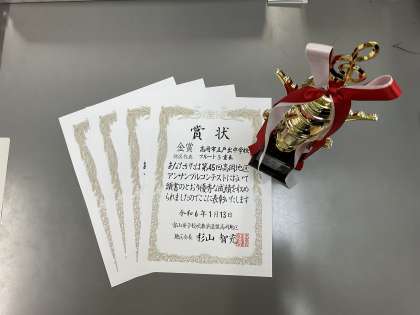 賞状
金賞 高岡市立戸出中学校
フルート五重奏
あなたたちは第45回高岡地区
アンサンブルコンテストにおいて
頭書のとおり優秀な成績を収め
られましたのでここに表彰いたします
令和6年1月13日
富山県吹奏楽連盟高岡地区
杉山 智充